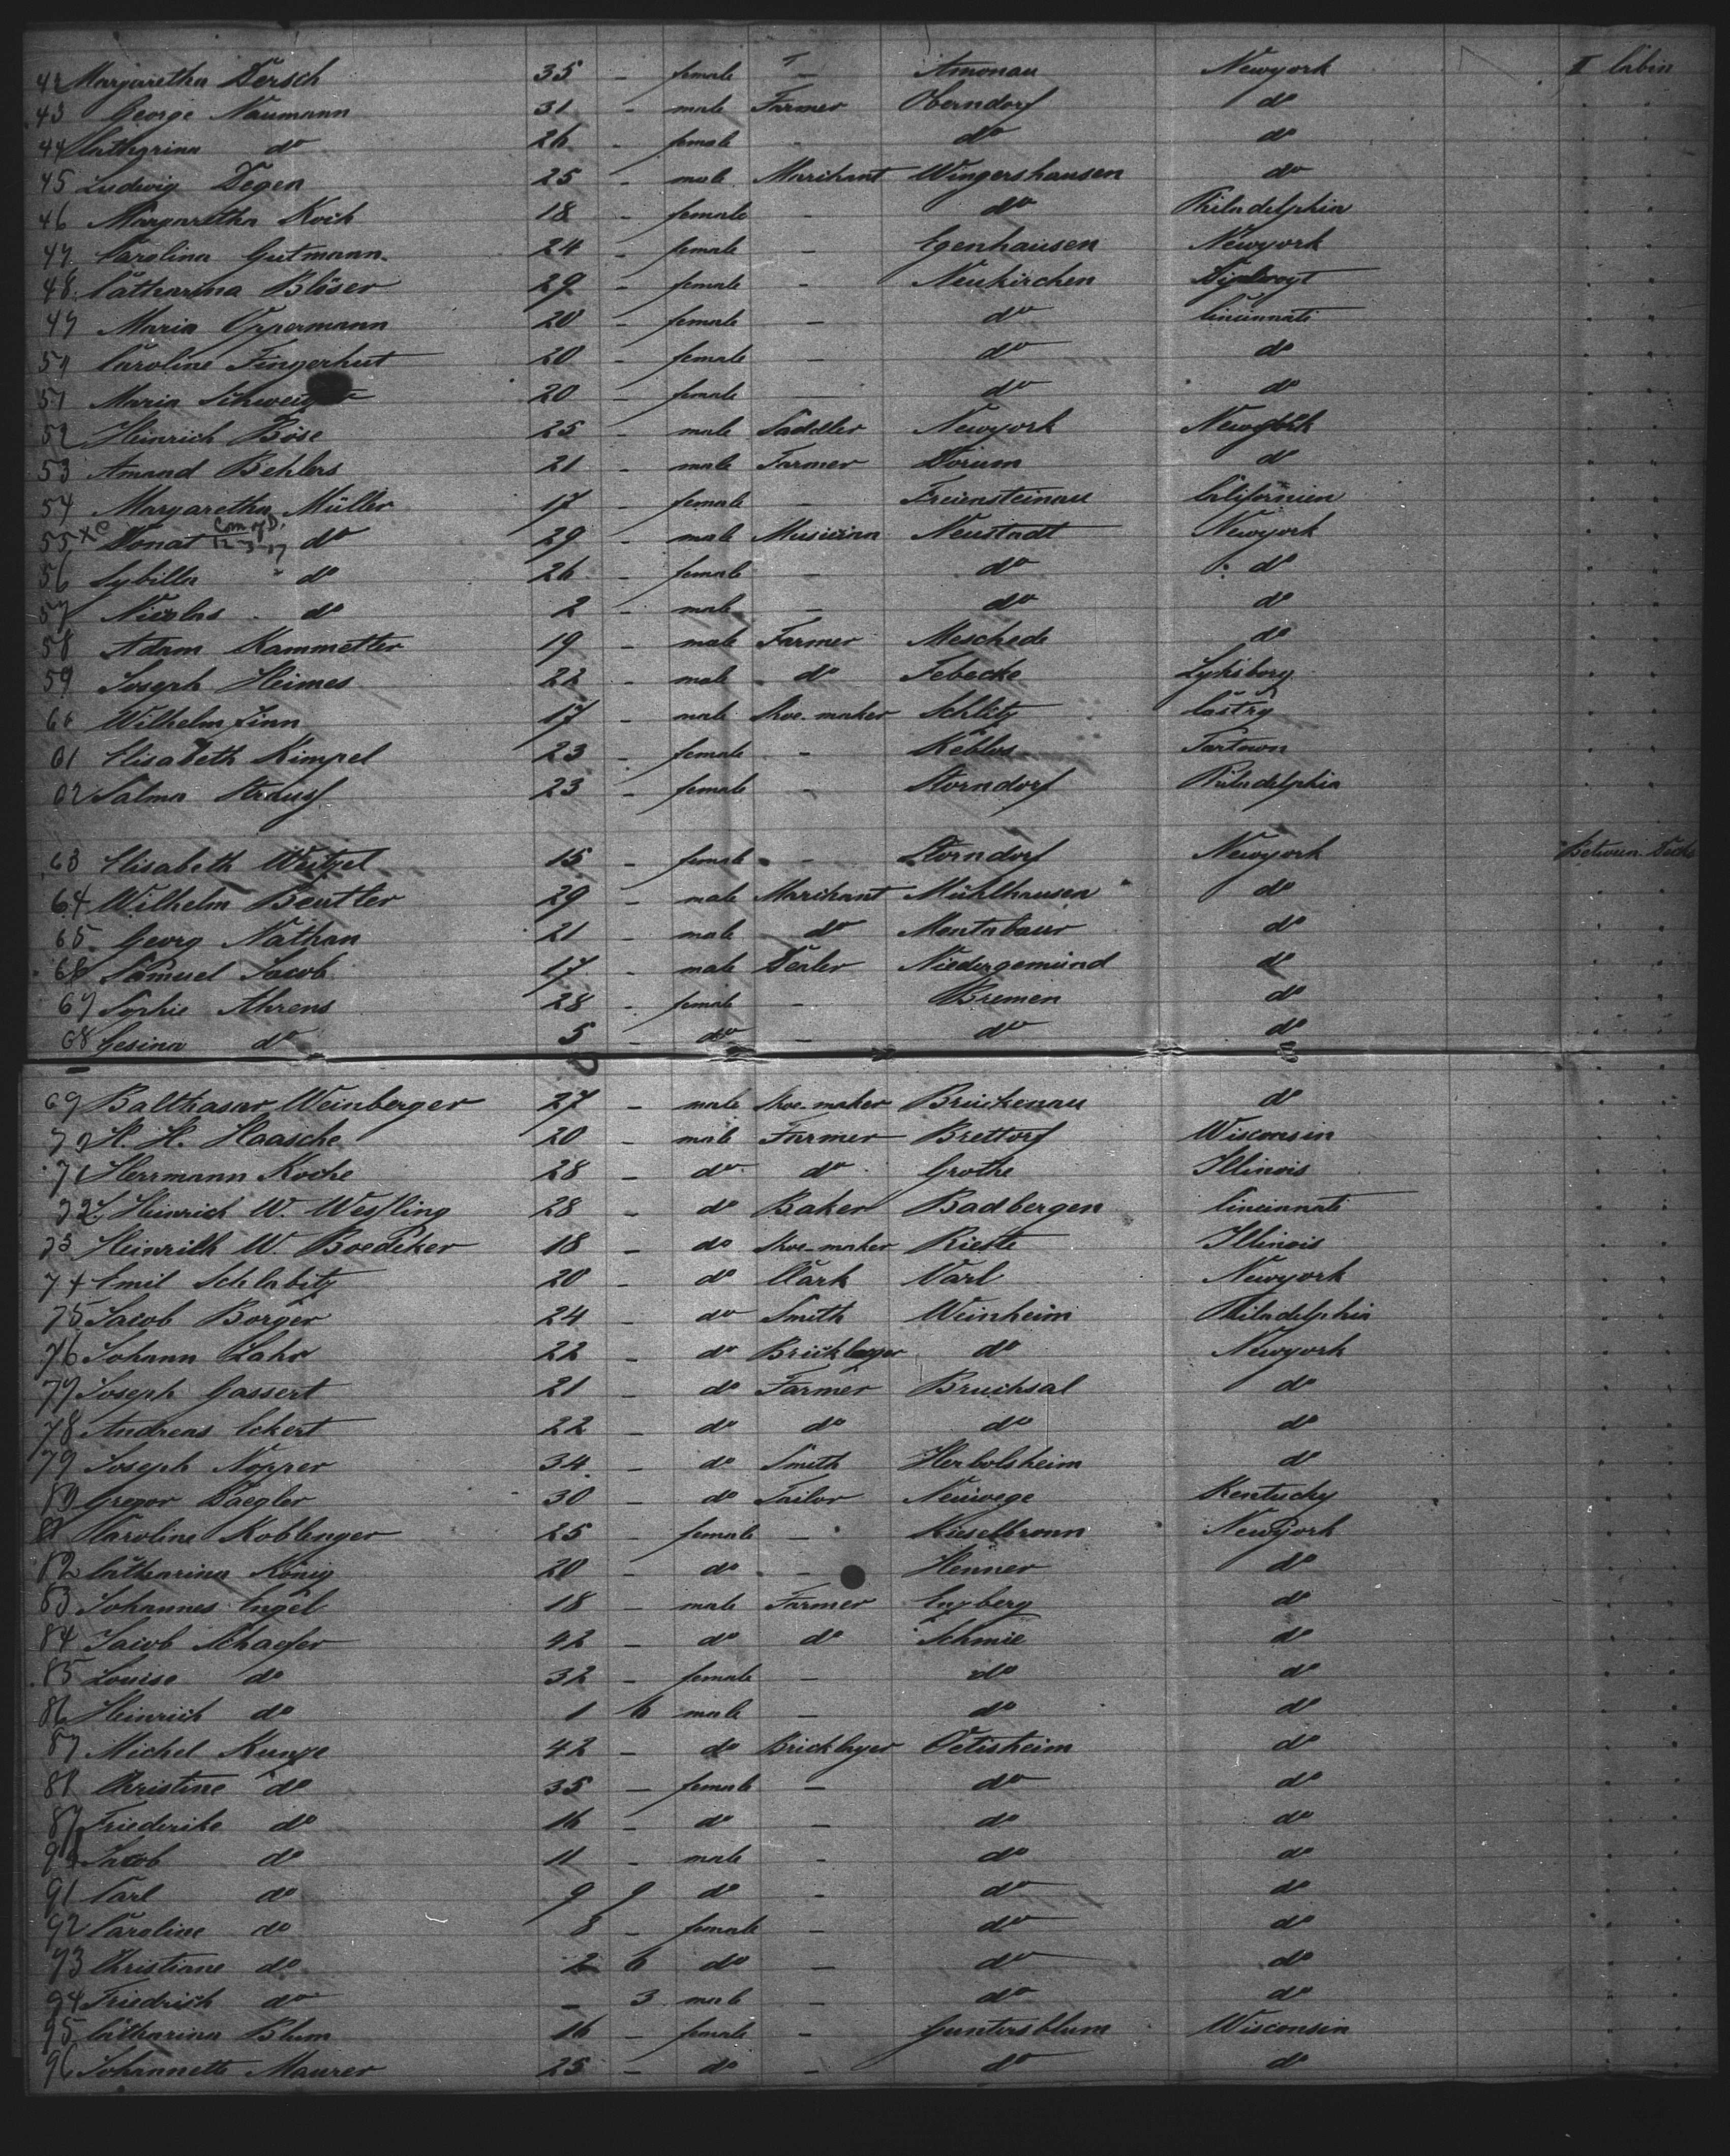 42 Margaretha Dersch 35 - female - Amonau Newyork II Cabin
43 George Naumann 31 - male Farmer Oberndorf do
44 Catharina do 26 - female - do do
45 Ludwig Degen 25 - male Marchant Wingershausen do
46 Margaretha Koch 18 - female - do Philadelphia
47 Carolina Gutmann 24 - female - Egenhausen Newyork
48 Catharina Blöser 29 - female - Neukirchen
49 Maria Oppermann 20 - female - do Cincinnati
50 Caroline Fingerhut 20 - female - do do
51 Maria 20 - female - do do
52 Heinrich Böse 25 - male Saddler Newyork Newyork
53 Amand Behlers 21 - male Farmer Dorum do
54 Margaretha Müller 17 - female - Freiensteinau Californien
55 XC Donat do 29 - male Musician Neustadt Newyork
56 Sybilla do 26 - female - do do
57 Nicolas do 2 - male - do do
58 Adam Kammetter 19 - male Farmer Meschede do
59 Joseph Heimes 22 - male do Febecke
60 Wilhelm Linn 17 - male Shoe-maker Schlitz
61 Elisabeth Kimpel 23 - female - Keblos Tartown
62 Salma Strauss 23 - female - Storndorf Philadelphia
63 Elisabeth Weitzel 15 - female - Storndorf Newyork Between Decks
64 Wilhelm Beutler 29 - male Marchant Mühlhausen do
65 Georg Nathan 21 - male do Montabaur do
66 Samuel Jacob 17 - male Dealer Niedergemünd do
67 Sophie Ahrens 28 - female - Bremen do
68 Gesina do 5 - do - do do
69 Balthasar Weinberger 27 - male Shoe-maker Brückenau do
70 H. H. Haasche 20 - male Farmer Brettorf Wisconsin
71 Herrmann Koche 28 - do do Grothe Illinois
72 J. Heinrich W. Wessling 28 - do Baker Badbergen Cincinnati
73 Heinrich W. Boedeker 18 - do Shoe-maker Rieste Illinois
74 Emil Schlabitz 20 - do Clark Varl Newyork
75 Jacob Borger 24 - do Smith Weinheim Philadelphia
76 Johann Lahr 22 - do Bricklayer do Newyork
77 Joseph Gassert 21 - do Farmer Bruchsal do
78 Andreas Eckert 22 - do do do do
79 Joseph Nopper 34 - do Smith Herbolsheim do
80 Gregor Daegler 30 - do Tailor Neuwege Kentucky
81 Caroline Koblenger 25 - female - Kieselbronn Newyork
82 Catharina König 20 - do - Henner do
83 Johannes Engel 18 - male Farmer Enzberg do
84 Jacob Schaefer 42 - do do Schmie do
85 Louise do 32 - female - do do
86 Heinrich do 1 6 male - do do
87 Michel Kunze 42 - do Bricklayer Oetisheim do
88 Christine do 35 - female - do do
89 Friederike do 16 - do - do do
90 Jacob do 11 - male - do do
91 Carl do 9 9 do - do do
92 Caroline do 8 - female - do do
93 Christiane do 2 6 do - do do
94 Friedrich do - 3 male - do do
95 Catharina Blum 16 - female - Guntersblum Wisconsin
96 Johannette Maurer 25 - do - do do